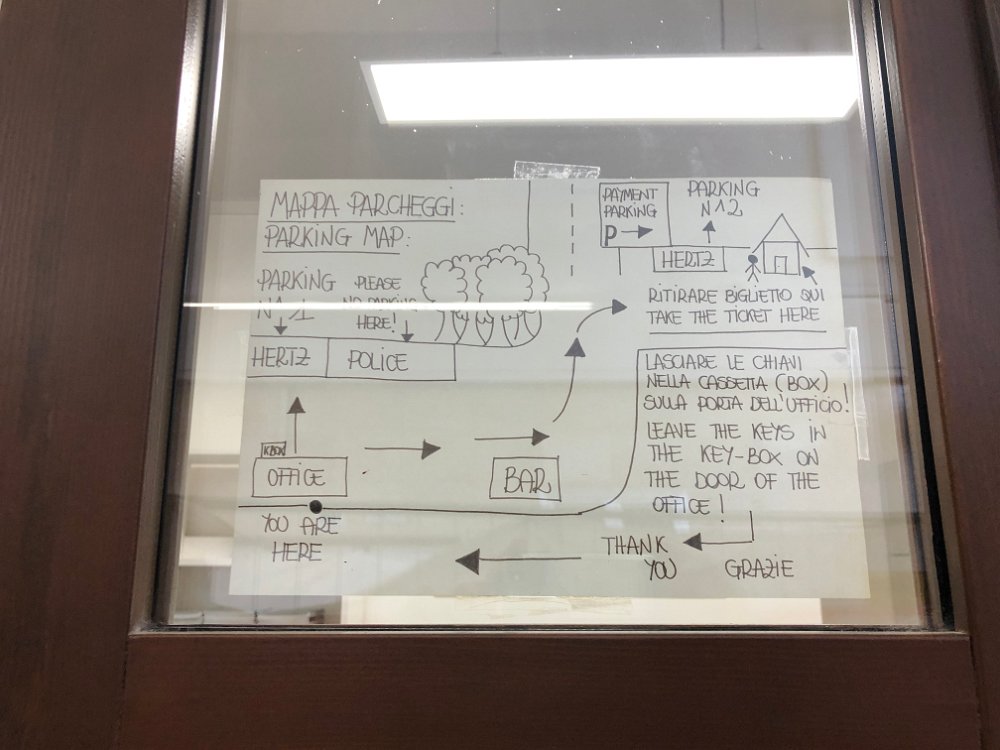 MAPPA PARCHEGGI:
PARKING MAP:
PARKING
N 1
PLEASE
NO PARKING
HERE!
HERTZ
POLICE
PAYMENT
PARKING
P
PARKING
N^2
HERTZ
RITIRARE BIGLIETTO QUI
TAKE THE TICKET HERE
LASCIARE LE CHIAVI
NELLA CASSETTA (BOX)
SULLA PORTA DELL'UFFICIO!
LEAVE THE KEYS IN
THE KEY-BOX ON
THE DOOR OF THE
OFFICE!
KBOX
OFFICE
BAR
YOU ARE
HERE
THANK
YOU
GRAZIE